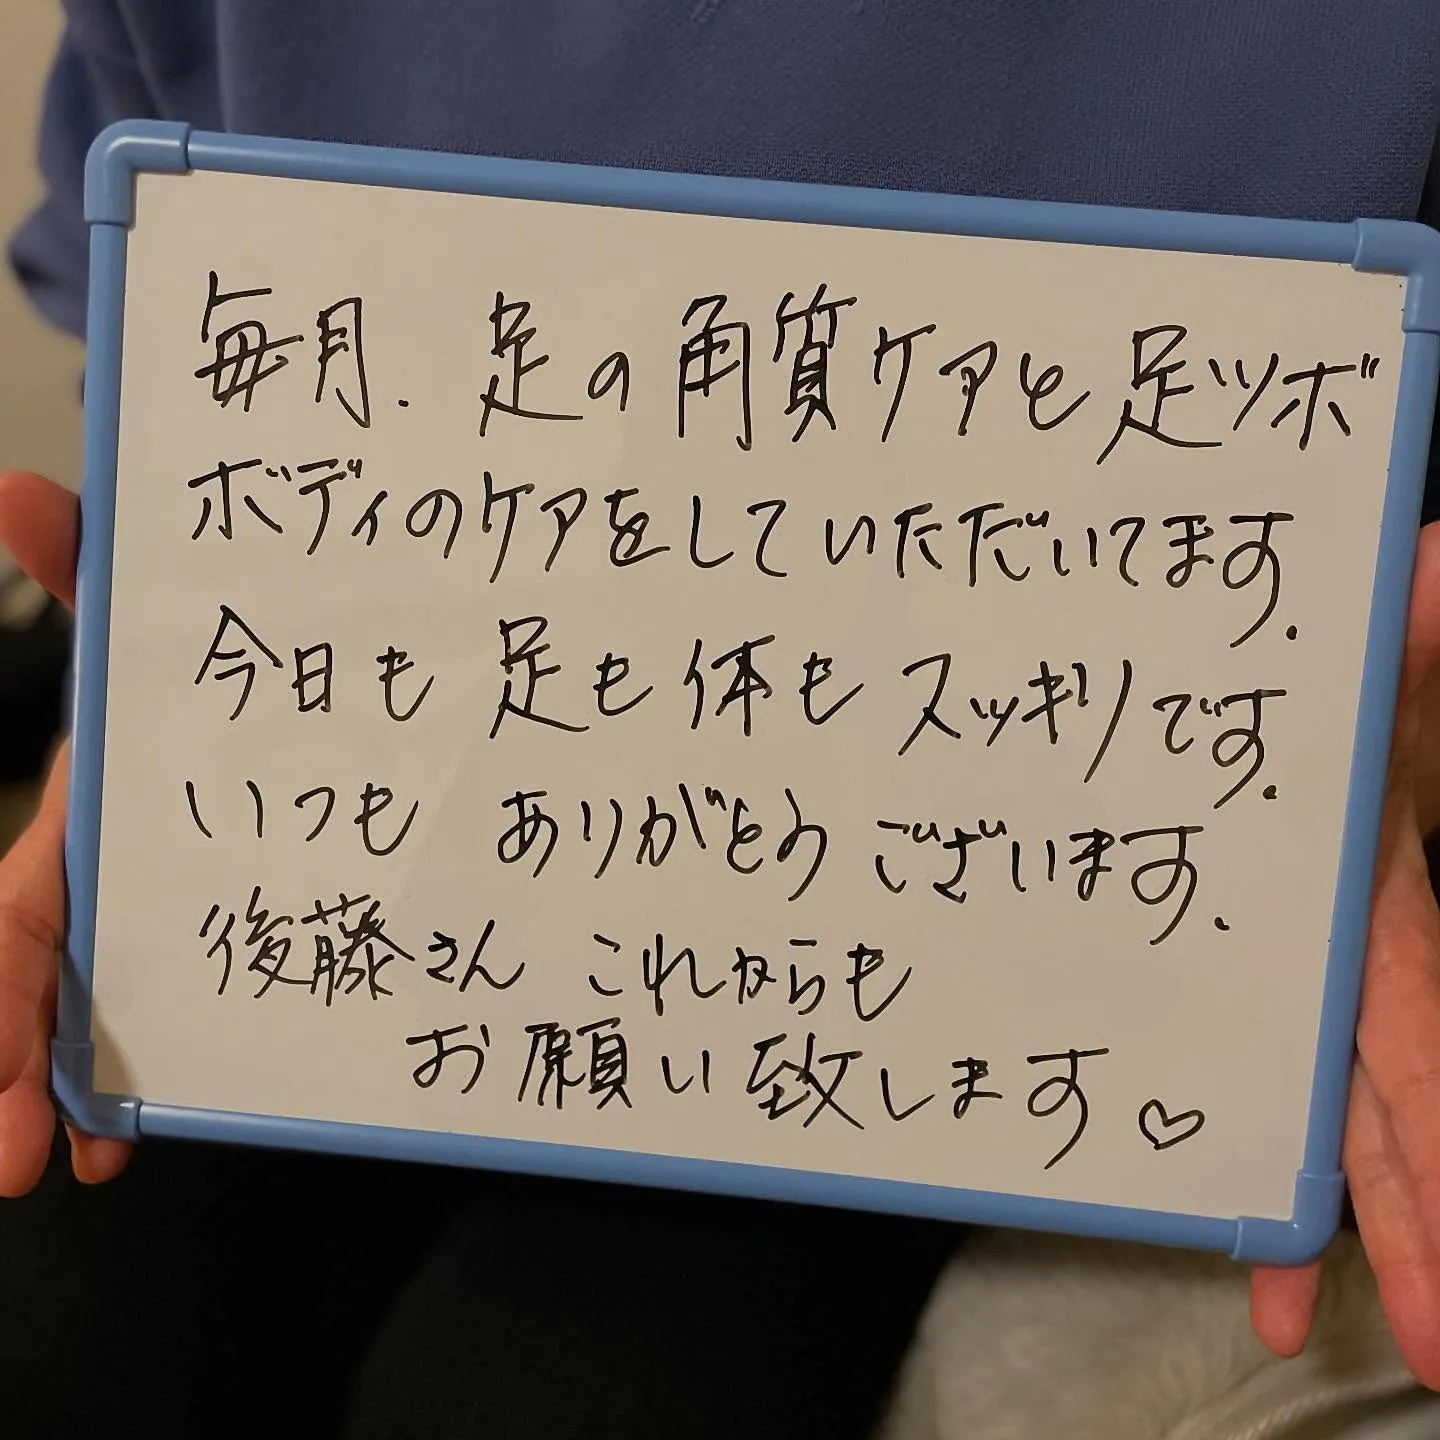 毎月.足の角質ケアと足ツボ
ボディのケアをしていただいてます.
今日も足も体もスッキリです.
いつもありがとうございます.
後藤さんこれからも
お願い致します♡